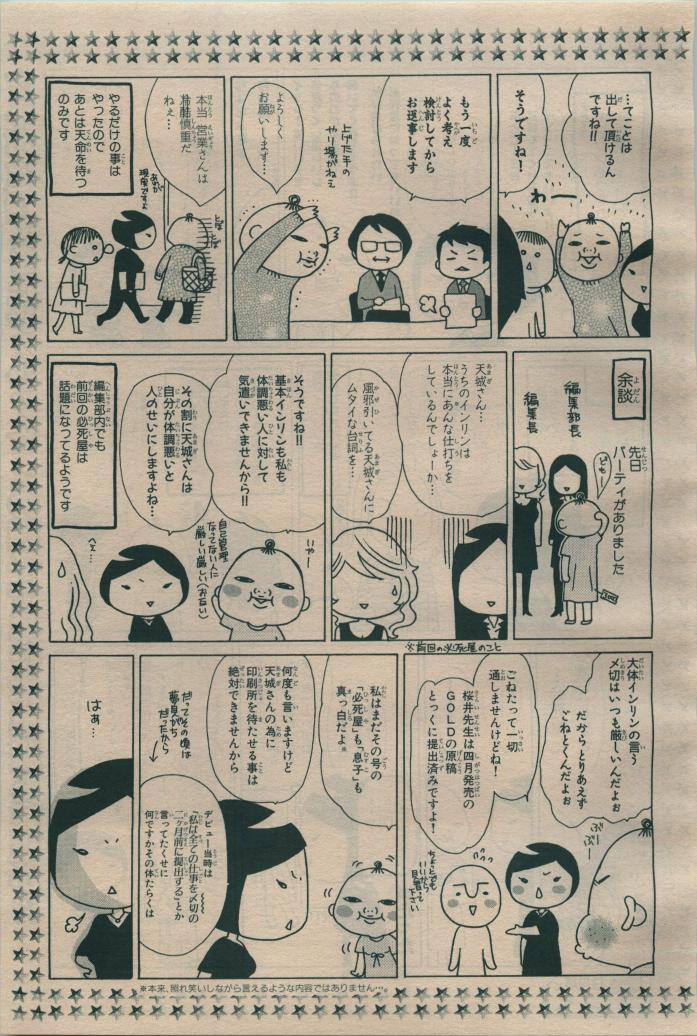 …てことは
出して頂けるん
ですね!!
そうですね!
わー
もう一度
よく考え
検討してから
お返事します
上げた手の
やり場がねぇ
よろしく
お願いします…
本当 営業さんは
冷酷慎重だ
ねぇ…
あれが
現実ですよ
とぼ
とぼ
やるだけの事は
やったので
あとは天命を待つ
のみです
余談
先日
パーティがありました
編集部長
編集長
天城さん…
うちのインリンは
本当にあんな仕打ちを
しているんでしょーか…
風邪引いてる天城さんに
ムタイな台詞を…
そうですね!!
基本インリンも私も
体調悪い人に対して
気遣いできませんから!!
いやー
自己管理
なってない人に
厳しい厳しい(お互い)
その割に天城さんは
自分が体調悪いと
人のせいにしますよね…
へぇ…
編集部内でも
前回の必死屋は
話題になってるようです
※前回の必死屋のこと
大体インリンの言う
〆切はいつも厳しいんだよぉ
だから とりあえず
ごねとくんだよぉ
ぶー
ぶー
ごねたって一切
通しませんけどね!
桜井先生は四月発売の
GOLDの原稿
とっくに提出済みですよ!
ちょっとでも
いいから
見習って
下さい
私はまだその号の
「必死屋」も「息子」も
真っ白だよ※
何度も言いますけど
天城さんの為に
印刷所を待たせる事は
絶対できませんから
だってその頃は
夢見がち
だったから
デビュー当時は
「私は全ての仕事を〆切の
二ヶ月前に提出する」とか
言ってたくせに
何ですかその体たらくは
はぁ…
※本来、照れ笑いしながら言えるような内容ではありません…。